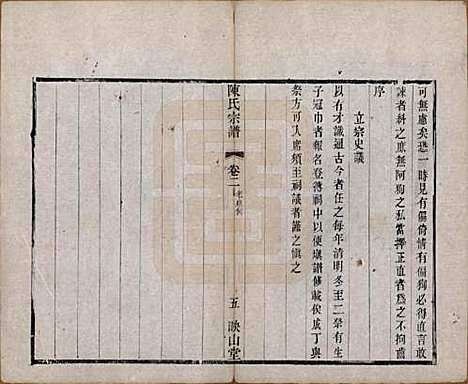 可無慮矣恐一時見有偏倚情有偏狥必得直言敢
諫者糾之庶無阿狥之私當擇正直者為之不拘閥
序
立宗史議
以有才識通古今者任之每年清明冬至二祭有生
子冠巾者報名登簿祠中以便續譜修載俟成丁與
祭方可入席須至祠議者謹之慎之
陳氏宗譜
卷二
五
映山堂